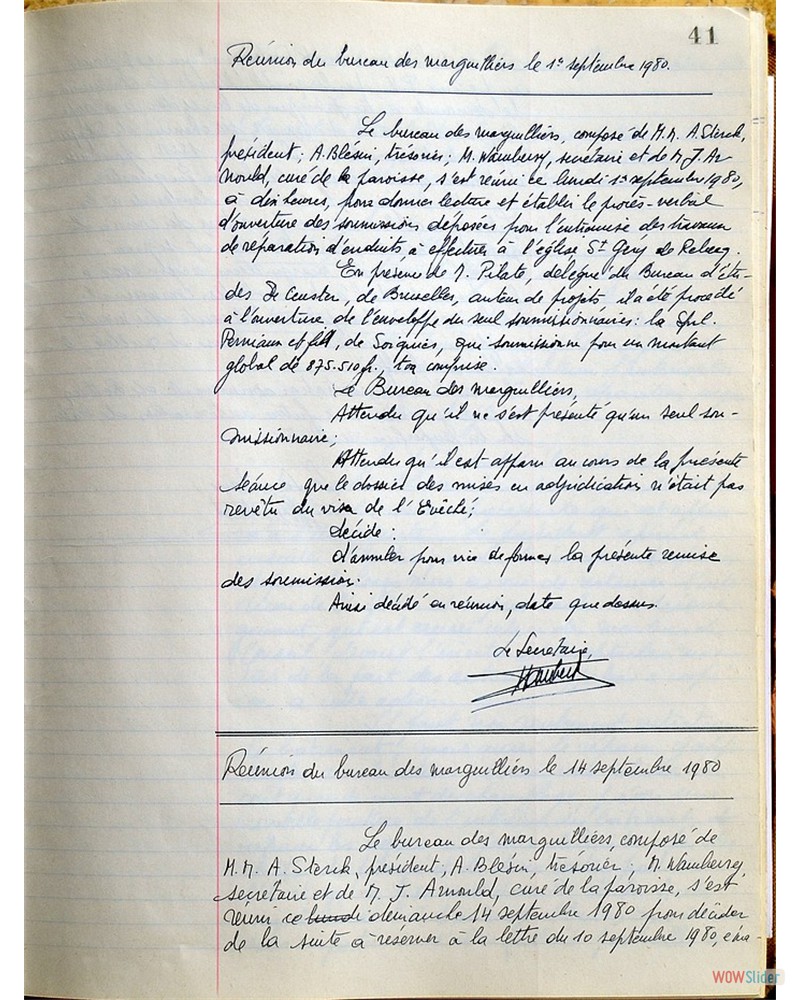 41
Réunion du bureau des marguilliers le 1er septembre 1980.
Le bureau des marguilliers, composé de M.M. A. Sterck,
président; A. Blésin, trésorier; M. Wambersy, secrétaire et de M J. Ar
nould, curé de la paroisse, s'est réuni ce lundi 1er septembre 1980,
à dix heures, pour donner lecture et établi le procès-verbal
d'ouverture des soumissions déposées pour l'entremise des travaux
de réparation d'enduits, à effectuer à l'église St Gery de Rebecq.
En présence de M. Pilate, délégué du Bureau d'étu-
des De Ceuster, de Bruxelles, auteur de projets il a été procédé
à l'ouverture de l'enveloppe du seul soumissionnaires: la Sprl.
Perniaux et fill, de Soignies, qui soumissionne pour un montant
global de 875.510 fr., tva comprise.
Le Bureau des marguilliers,
Attendu qu'il ne s'est présenté qu'un seul sou-
missionnaire;
Attendu qu'il est apparu au cours de la présente
séance que le dossier des mises en adjudication n'était pas
revêtu du visa de l'Evêché;
décide:
d'annuler pour vice de formes la présente remise
des soumission.
Ainsi décidé en réunion, date que dessus.
Le Secrétaire,
Réunion du bureau des marguilliers le 14 septembre 1980
Le bureau des marguilliers, composé de
M.M. A. Sterck, président, A. Blésin, trésorier; M. Wambersy,
secrétaire et de M. J. Arnould, curé de la paroisse, s'est
réuni ce lundi dimanche 14 septembre 1980 pour décider
de la suite à réserver à la lettre du 10 septembre 1980, éma-
WOWSlider